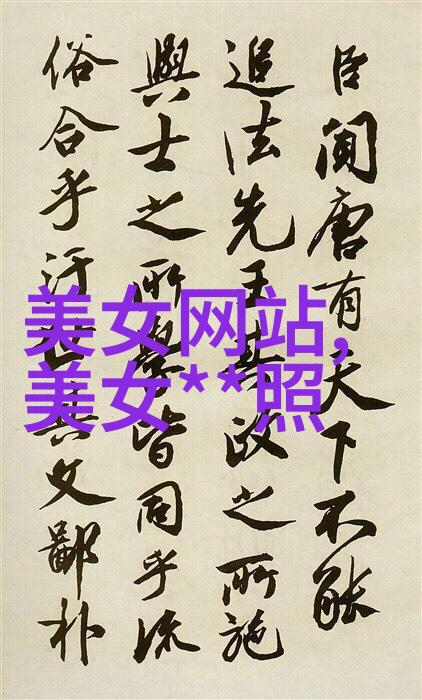 臣聞唐有天下不能
追法先王其政之所施
與士之所學皆同乎流
俗合乎汙世其文鄙朴
美女网站,
美女**照